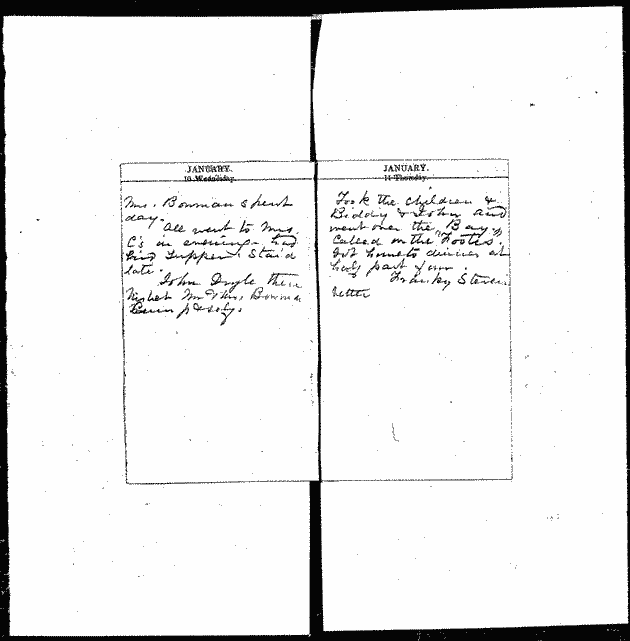 JANUARY.
10 Wednesday.
Mrs. Bowman spent
day.
All went to Mrs.
C's in evening - had
supper. Staid
late.
John Doyle
Mr & Mrs. Bowman
JANUARY.
11 Thursday.
Took the children &
Biddy & John and
went over the Bay
Called on the "Footes."
Got home to dinner at
half past four.
Franky Steven
better